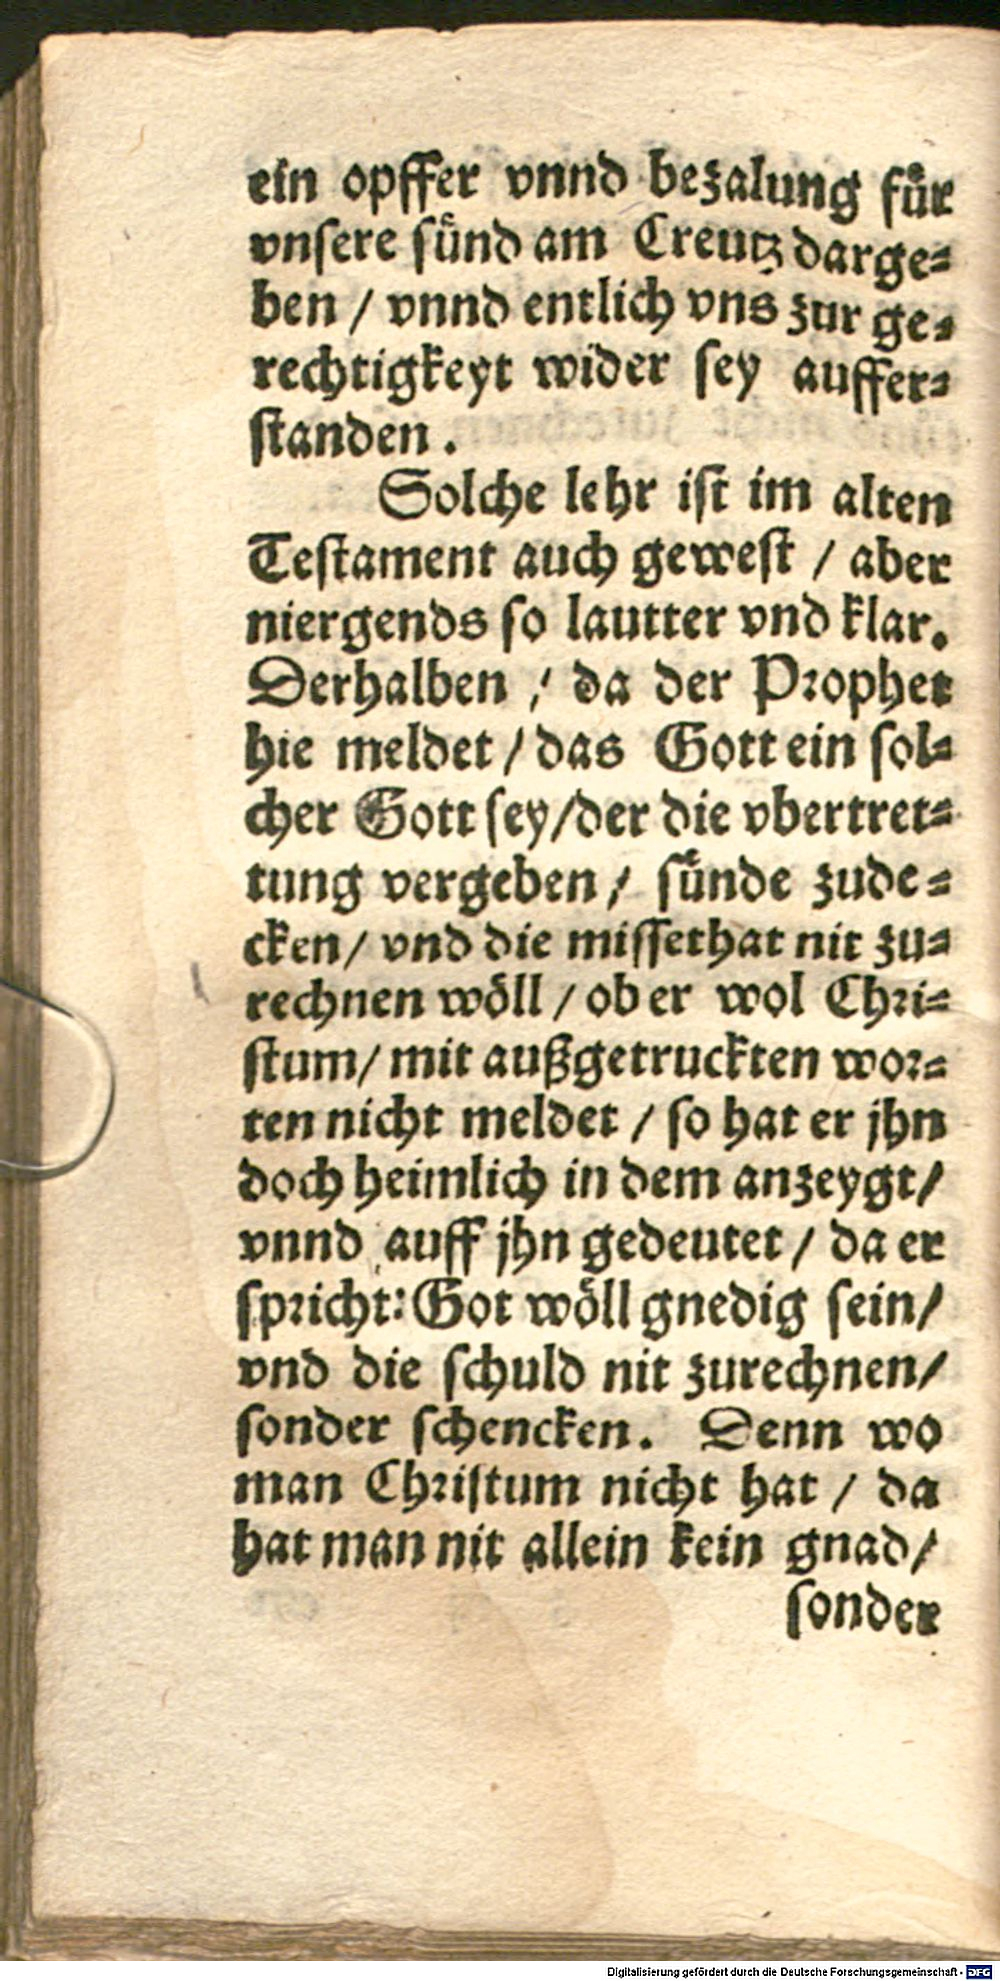 ein opffer vnnd bezalung fuͤr
vnsere suͤnd am Creutz darge⸗
ben / vnnd entlich vns zur ge⸗
rechtigkeyt wider sey auffer⸗
standen.
Solche lehr ist im alten
Testament auch gewest / aber
niergends so lautter vnd klar.
Derhalben / da der Prophet
hie meldet / das Gott ein sol⸗
cher Gott sey/der die vbertret⸗
tung vergeben / suͤnde zude⸗
cken/ vnd die missethat nit zu⸗
rechnen woͤll / ob er wol Chri⸗
stum/ mit außgetruckten wor⸗
ten nicht meldet / so hat er jhn
doch heimlich in dem anzeygt/
vnnd auff jhn gedeutet / da er
spricht: Got woͤll gnedig sein/
vnd die schuld nit zurechnen/
sonder schencken. Denn wo
man Christum nicht hat / da
hat man nit allein kein gnad/
sonder
Digitalisierung gefördert durch die Deutsche Forschungsgemeinschaft - DFG